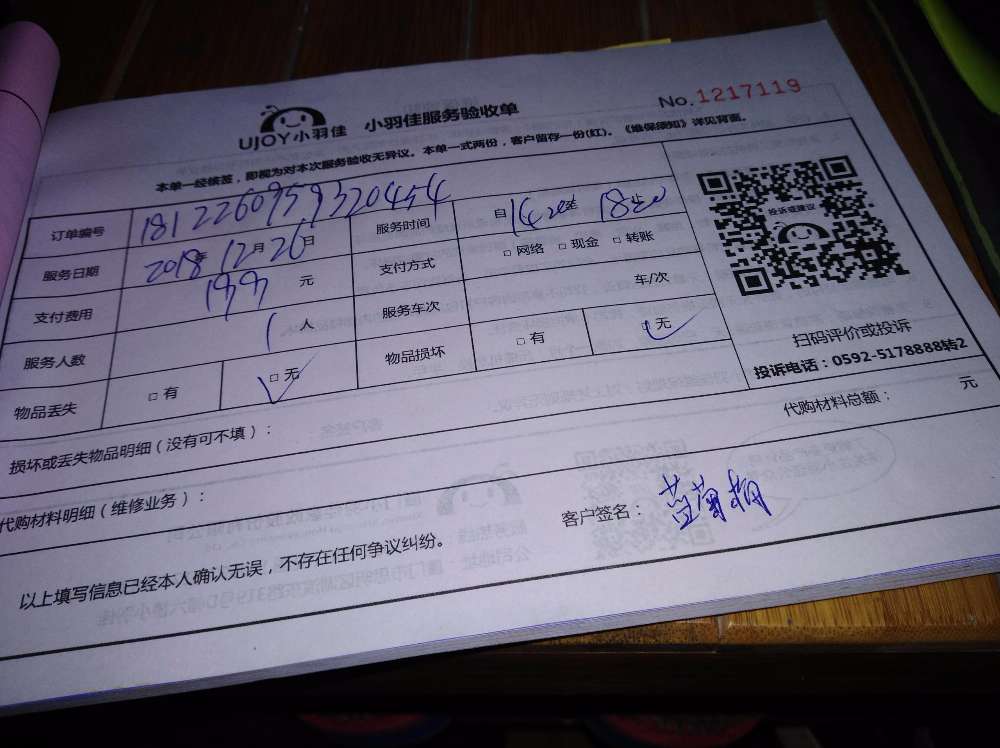 UJOY小羽佳 小羽佳服务验收单 No.1217119
本单一经核签，即视为对本次服务验收无异议。本单一式两份，客户留存一份(红)。《维保须知》详见背面。
订单编号 1812260959320454 服务时间 自 14:00 至 18:00
服务日期 2018年12月26日 支付方式 □ 网络 □ 现金 □ 转账
支付费用 199 元 服务车次 车/次
服务人数 1人 物品损坏 □ 有 □ 无
物品丢失 □ 有 □ 无
投诉或建议
扫码评价或投诉
投诉电话：0592-5178888转2
损坏或丢失物品明细（没有可不填）：
代购材料总额： 元
代购材料明细（维修业务）：
客户签名：
以上填写信息已经本人确认无误，不存在任何争议纠纷。